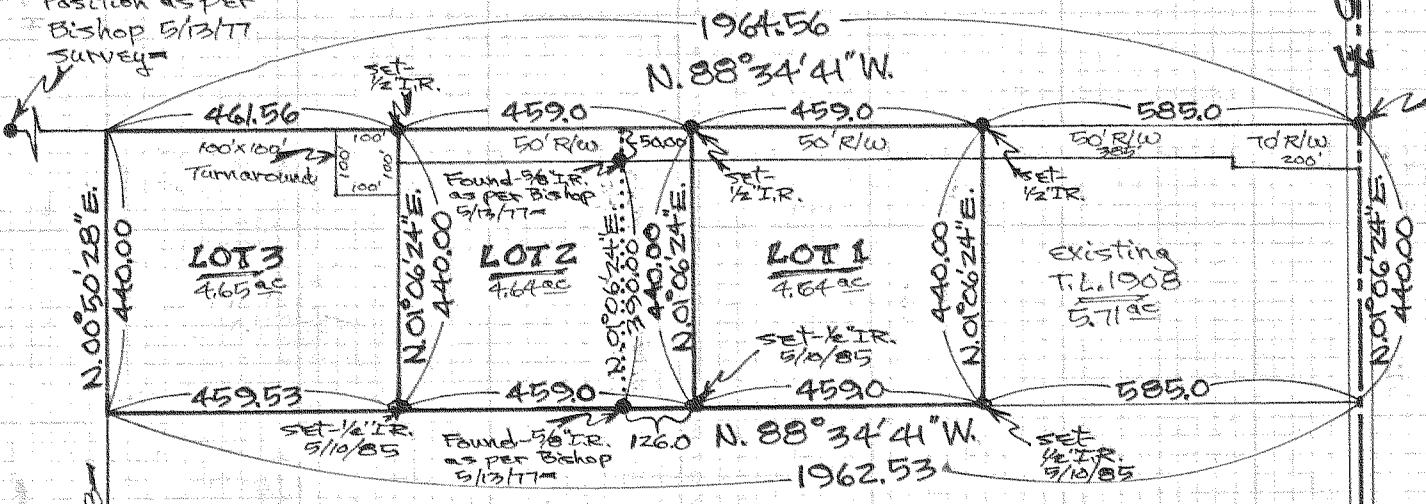 Position as per
Bishop 5/13/77
survey
1964.56
N. 88°34'41"W.
set-
1/2"I.R.
461.56
459.0
459.0
585.0
100'x100'
Turnaround
100'
100'
100'
100'
50' R/W
50.00
50' R/W
50' R/W
385'
70' R/W
200'
Found-5/8"I.R.
as per Bishop
5/13/77
set-
1/2"I.R.
set-
1/2"I.R.
N.00°50'28"E.
440.00
LOT 3
4.65 ac
N.01°06'24"E.
440.00
LOT 2
4.64 ac
N.01°06'24"E.
390.00
440.00
N.01°06'24"E.
LOT 1
4.64 ac
440.00
N.01°06'24"E.
existing
T.L.1908
5.71 ac
N.01°06'24"E.
440.00
set-1/2"I.R.
5/10/85
459.53
459.0
459.0
585.0
set-1/2"I.R.
5/10/85
Found-5/8"I.R.
as per Bishop
5/13/77
126.0
N. 88°34'41"W.
set-
1/2"I.R.
5/10/85
1962.53